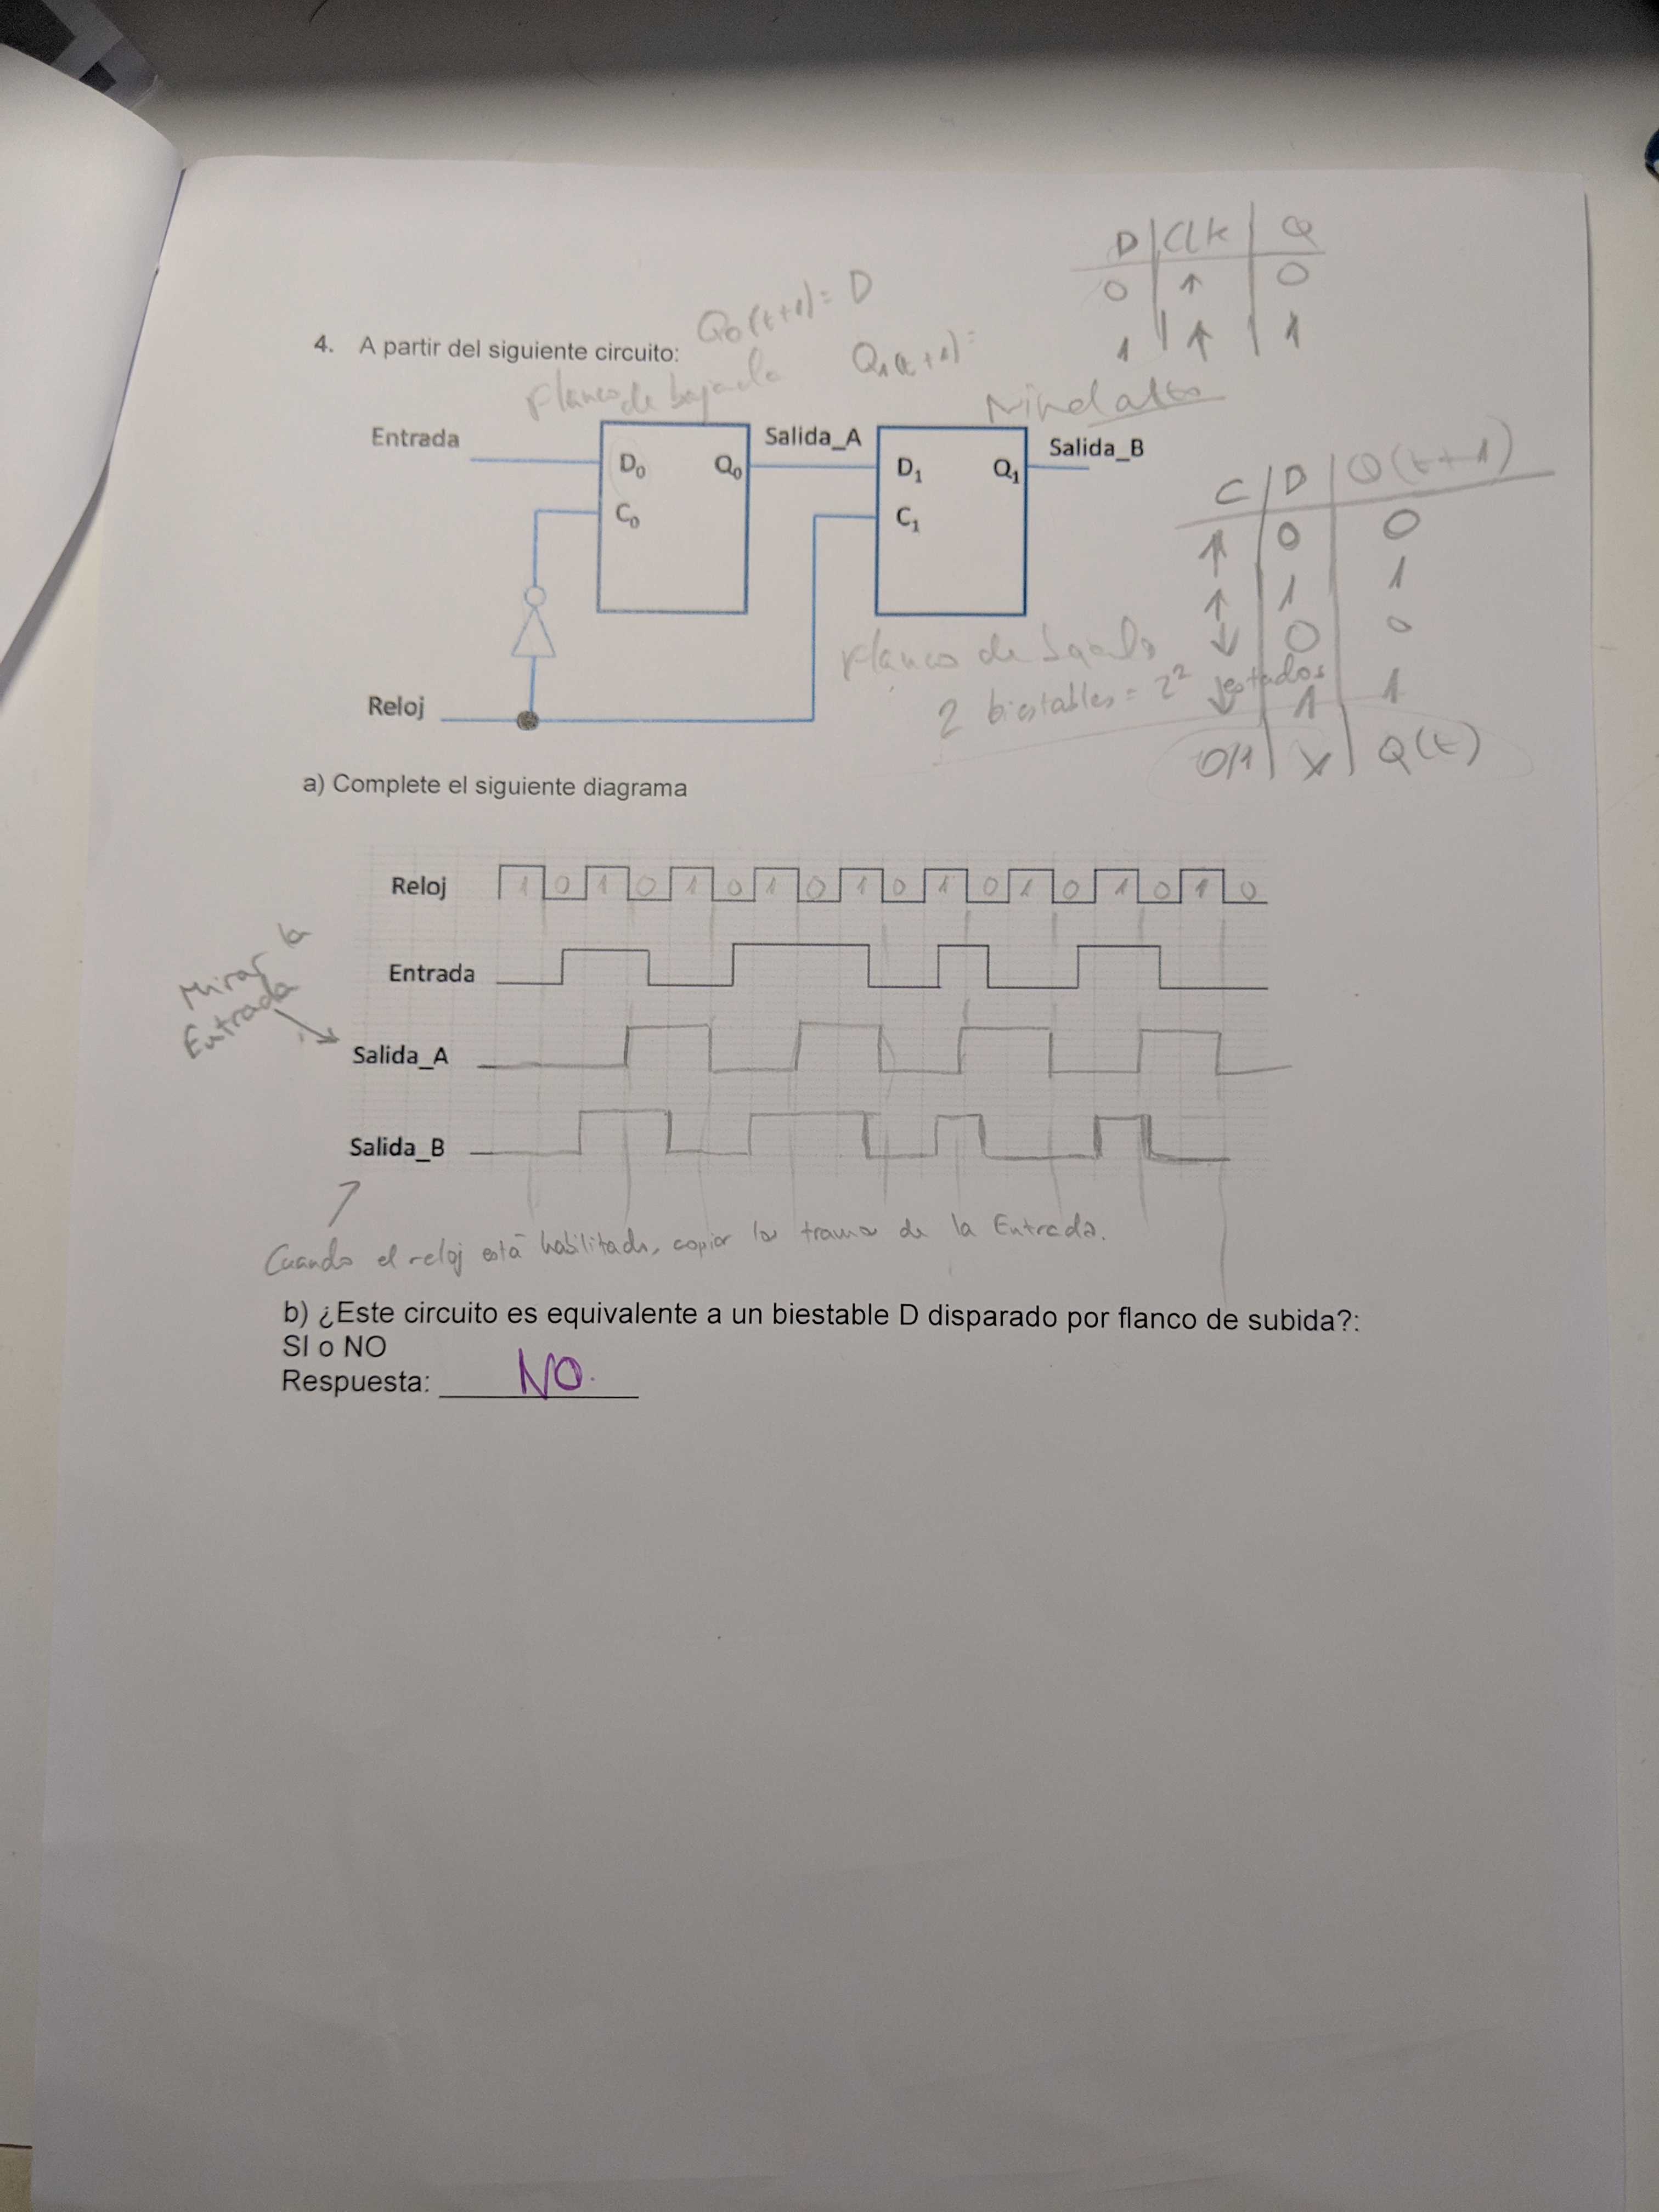 D | Clk | Q
0 | ↑ | 0
1 | ↑ | 1
Q0(t+1) = D
4. A partir del siguiente circuito:
Q1(t+1) =
Flanco de bajada
Nivel alto
Entrada
D0 Q0
C0
Salida_A
D1 Q1
C1
Salida_B
C | D | Q(t+1)
↑ | 0 | 0
↑ | 1 | 1
↓ | 0 | 0
↓ | 1 | 1
0/1 | X | Q(t)
Flanco de
2 biestables = 2² estados
Reloj
a) Complete el siguiente diagrama
Reloj 1 0 1 0 1 0 1 0 1 0 1 0 1 0 1 0 1 0
Entrada
Mirar la
Entrada
Salida_A
Salida_B
Cuando el reloj está habilitado, copiar los tramos de la Entrada.
b) ¿Este circuito es equivalente a un biestable D disparado por flanco de subida?:
SI o NO
Respuesta: NO.